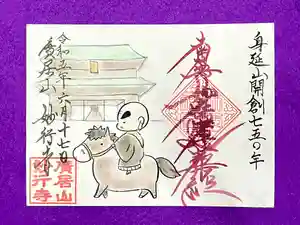 身延山開創七五〇年
南無妙法蓮華経
令和五年六月十七日
廣居山 妙行寺
廣居山
妙行寺